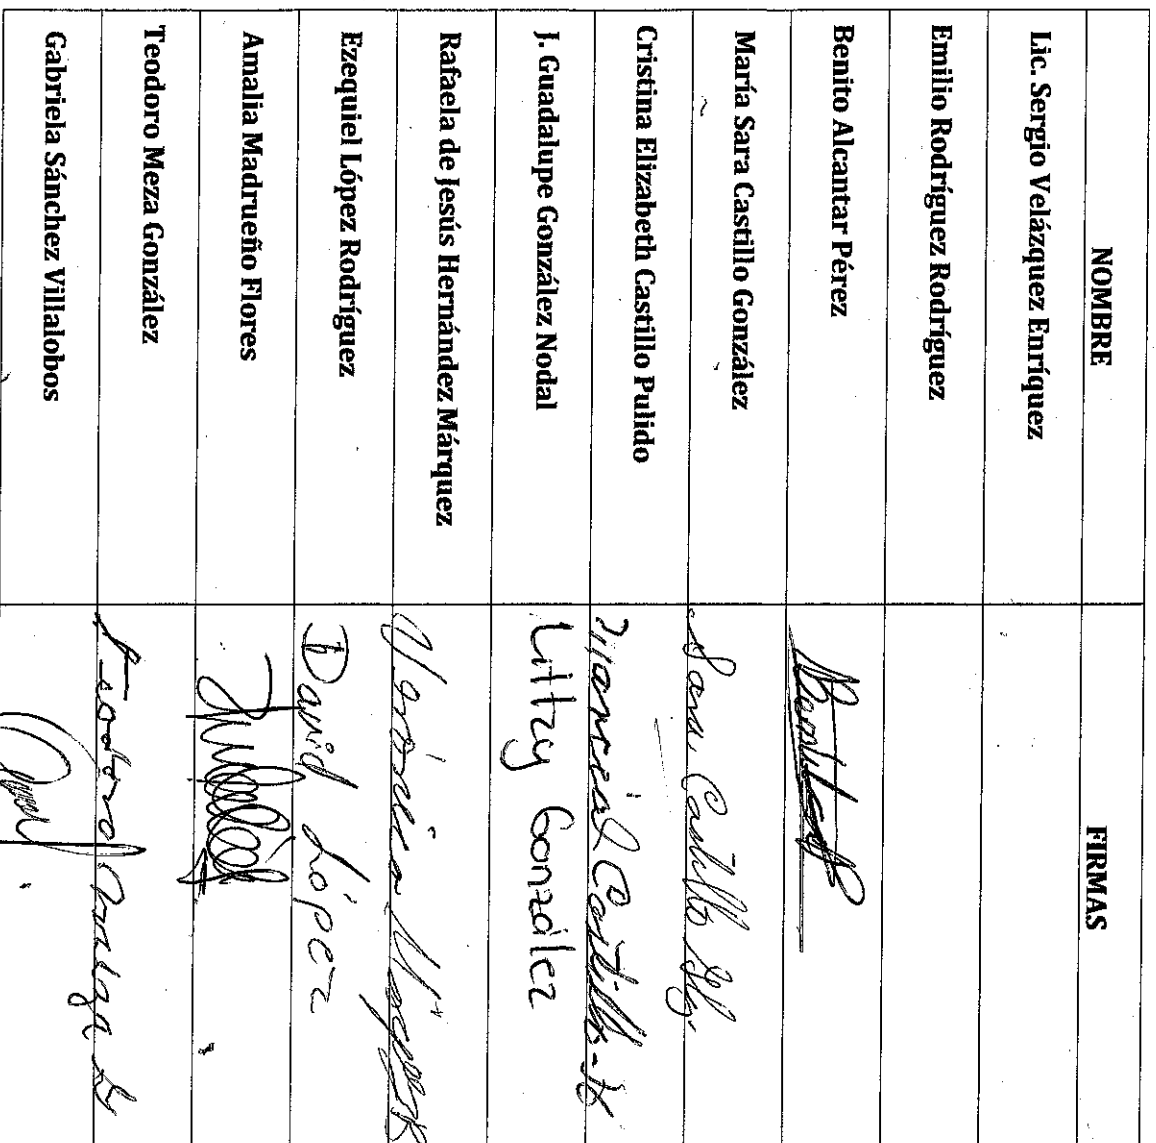 NOMBRE FIRMAS
Lic. Sergio Velázquez Enríquez
Emilio Rodríguez Rodríguez
Benito Alcantar Pérez
María Sara Castillo González Sara Castillo
Cristina Elizabeth Castillo Pulido Castillo
J. Guadalupe González Nodal Litzy González
Rafaela de Jesús Hernández Márquez
Ezequiel López Rodríguez David López
Amalia Madrueño Flores
Teodoro Meza González Teodoro
Gabriela Sánchez Villalobos